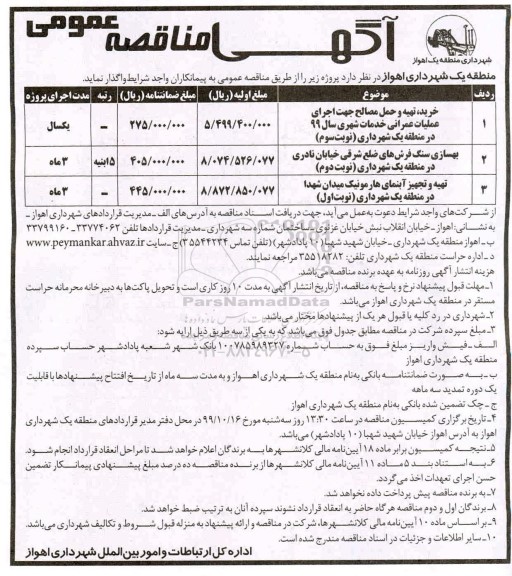 آگهی مناقصه عمومی
شهرداری منطقه یک اهواز
منطقه یک شهرداری اهواز در نظر دارد پروژه زیر را از طریق مناقصه عمومی به پیمانکاران واجد شرایط واگذار نماید.
ردیف موضوع مبلغ اولیه (ریال) مبلغ ضمانتنامه (ریال) رتبه مدت اجرای پروژه
۱ خرید، تهیه و حمل مصالح جهت اجرای عملیات عمرانی خدمات شهری سال ۹۹ در منطقه یک شهرداری (نوبت سوم) ۵/۴۹۹/۴۰۰/۰۰۰ ۲۷۵/۰۰۰/۰۰۰ – یکسال
۲ بهسازی سنگ فرش‌های ضلع شرقی خیابان نادری در منطقه یک شهرداری (نوبت دوم) ۸/۰۷۴/۵۲۶/۰۷۷ ۴۰۵/۰۰۰/۰۰۰ ۵ ابنیه ۳ ماه
۳ تهیه و تجهیز آبنمای هارمونیک میدان شهدا در منطقه یک شهرداری (نوبت اول) ۸/۸۷۲/۸۵۰/۰۷۷ ۴۴۵/۰۰۰/۰۰۰ – ۳ ماه
از شرکت‌های واجد شرایط دعوت به‌عمل می‌آید، جهت دریافت اسناد مناقصه به آدرس‌های الف ـ مدیریت قراردادهای شهرداری اهواز ـ
به نشانی: اهواز ـ خیابان انقلاب نبش خیابان غزنوی ـ ساختمان شماره سه شهرداری ـ مدیریت قراردادها تلفن ۳۳۷۷۴۰۶۲ ـ ۳۳۷۹۹۱۶۰
ب ـ اهواز منطقه یک شهرداری ـ خیابان شهید شهبا (۱۰ پادادشهر) (تلفن تماس ۳۵۵۴۴۲۳۴) ج ـ سایت www.peymankar.ahvaz.ir
د ـ اداره حراست منطقه یک شهرداری تلفن: ۳۵۵۱۸۲۸۲ مراجعه نمایند.
هزینه انتشار آگهی روزنامه به عهده برنده مناقصه می‌باشد.
۱ـ مهلت قبول پیشنهاد نرخ و پاسخ به مناقصه، از تاریخ انتشار آگهی به مدت ۱۰ روز کاری است و تحویل پاکت‌ها به دبیرخانه محرمانه حراست
مستقر در منطقه یک شهرداری اهواز می‌باشد.
۲ـ شهرداری در رد کلیه یا قبول هر یک از پیشنهادها مختار می‌باشد.
۳ـ مبلغ سپرده شرکت در مناقصه مطابق جدول فوق می‌باشد که به یکی از سه طریق ذیل ارایه شود:
الف ـ فیش واریز مبلغ فوق به حساب شماره ۱۰۰۷۸۵۹۸۹۳۲۷ بانک شهر شعبه پادادشهر حساب سپرده
منطقه یک شهرداری اهواز
ب ـ به صورت ضمانتنامه بانکی به‌نام منطقه یک شهرداری اهواز و به مدت سه ماه از تاریخ افتتاح پیشنهادها با قابلیت
یک دوره تمدید سه ماهه
ج ـ چک تضمین شده بانکی به‌نام منطقه یک شهرداری اهواز
۴ـ تاریخ برگزاری کمیسیون مناقصه در ساعت ۱۳:۳۰ روز سه‌شنبه مورخ ۹۹/۱۰/۱۶ در محل دفتر مدیر قراردادهای منطقه یک شهرداری
اهواز به آدرس اهواز خیابان شهید شهبا (۱۰ پادادشهر) می‌باشد.
۵ـ نتیجه کمیسیون برابر ماده ۱۸ آیین‌نامه مالی کلانشهرها به برندگان اعلام خواهد شد تا مراحل انعقاد قرارداد انجام شود.
۶ـ به استناد بند ۵ ماده ۱۱ آیین‌نامه مالی کلانشهرها از برنده مناقصه ده درصد مبلغ پیشنهادی پیمانکار تضمین
حسن اجرای تعهدات اخذ می‌گردد.
۷ـ به برنده مناقصه پیش پرداخت داده نخواهد شد.
۸ـ برندگان اول و دوم مناقصه هر گاه حاضر به انعقاد قرارداد نشوند سپرده آنان به ترتیب ضبط خواهد شد.
۹ـ بر اساس ماده ۱۰ آیین‌نامه مالی کلانشهرها، شرکت در مناقصه و ارائه پیشنهاد به منزله قبول شروط و تکالیف شهرداری می‌باشد.
۱۰ـ سایر اطلاعات و جزئیات در اسناد مناقصه مندرج شده است.
اداره کل ارتباطات و امور بین‌الملل شهرداری اهواز
ParsNamadData